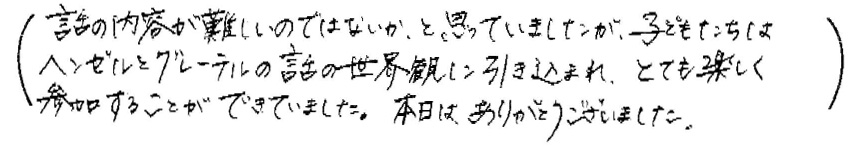 (話の内容が難しいのではないか、と思っていましたが、子どもたちは
ヘンゼルとグレーテルの話の世界観に引き込まれ、とても楽しく
参加することができていました。本日は、ありがとうございました。)